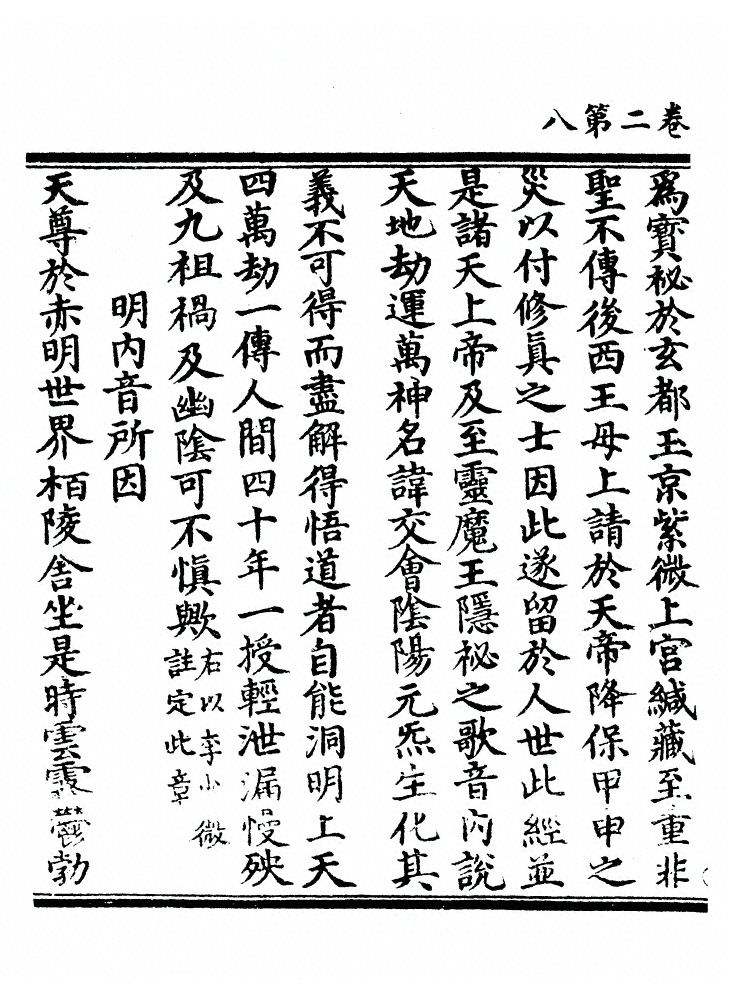 卷二第八
爲寳祕於玄都玉京紫微上宮緘藏至重非
聖不傳後西王母上請於天帝降保甲申之
災以付修眞之士因此遂留於人世此經並
是諸天上帝及至靈魔王隱祕之歌音內說
天地劫運萬神名諱交會隂陽元炁生化其
義不可得而盡解得悟道者自能洞明上天
四萬劫一傳人間四十年一授輕泄漏慢殃
及九祖禍及幽隂可不愼歟右以李小微
註定此章
明內音所因
天尊於赤明世界栢陵舍坐是時雲霧鬱勃